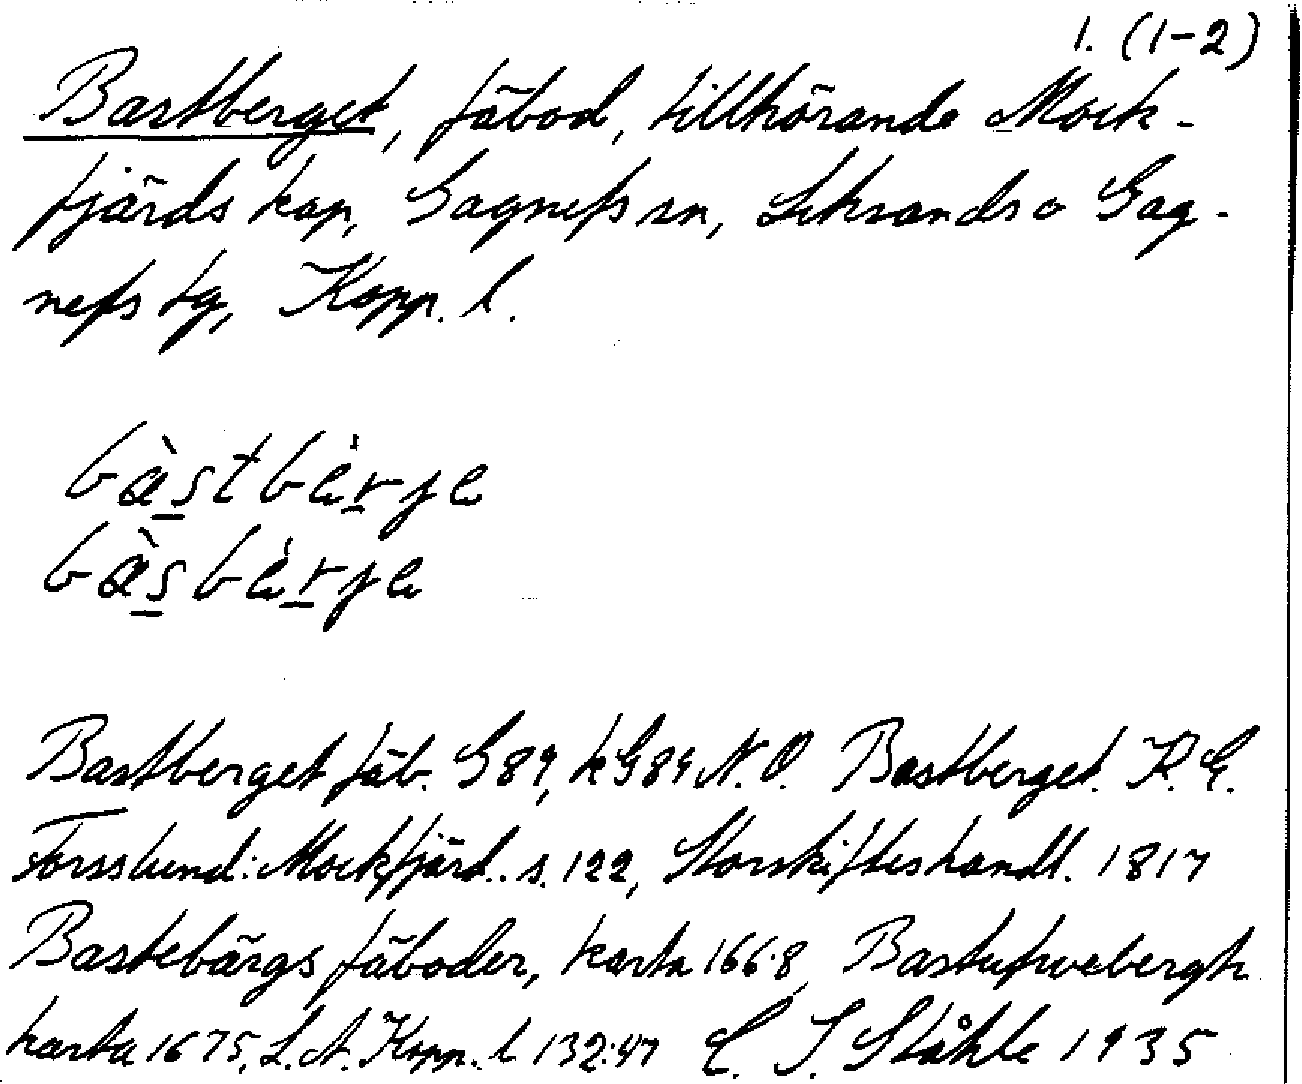 1. (1-2)
Bastberget, fäbod, tillhörande Mock-
fjärds kap, Gagnefs sn, Leksands o Gag-
nefs tg, Kopp. l.
bàstbèrje
bàsbèrje
Bastberget fäb. G89, kG89 N.O. Bastberget. K.E.
Forsslund: Mockfjärd. s. 122, Storskifteshandl. 1817
Bastebärgs fäboder, karta 1668, Bastufwebergh
karta 1675, L.A. Kopp. l 132:47 C. I. Ståhle 1935